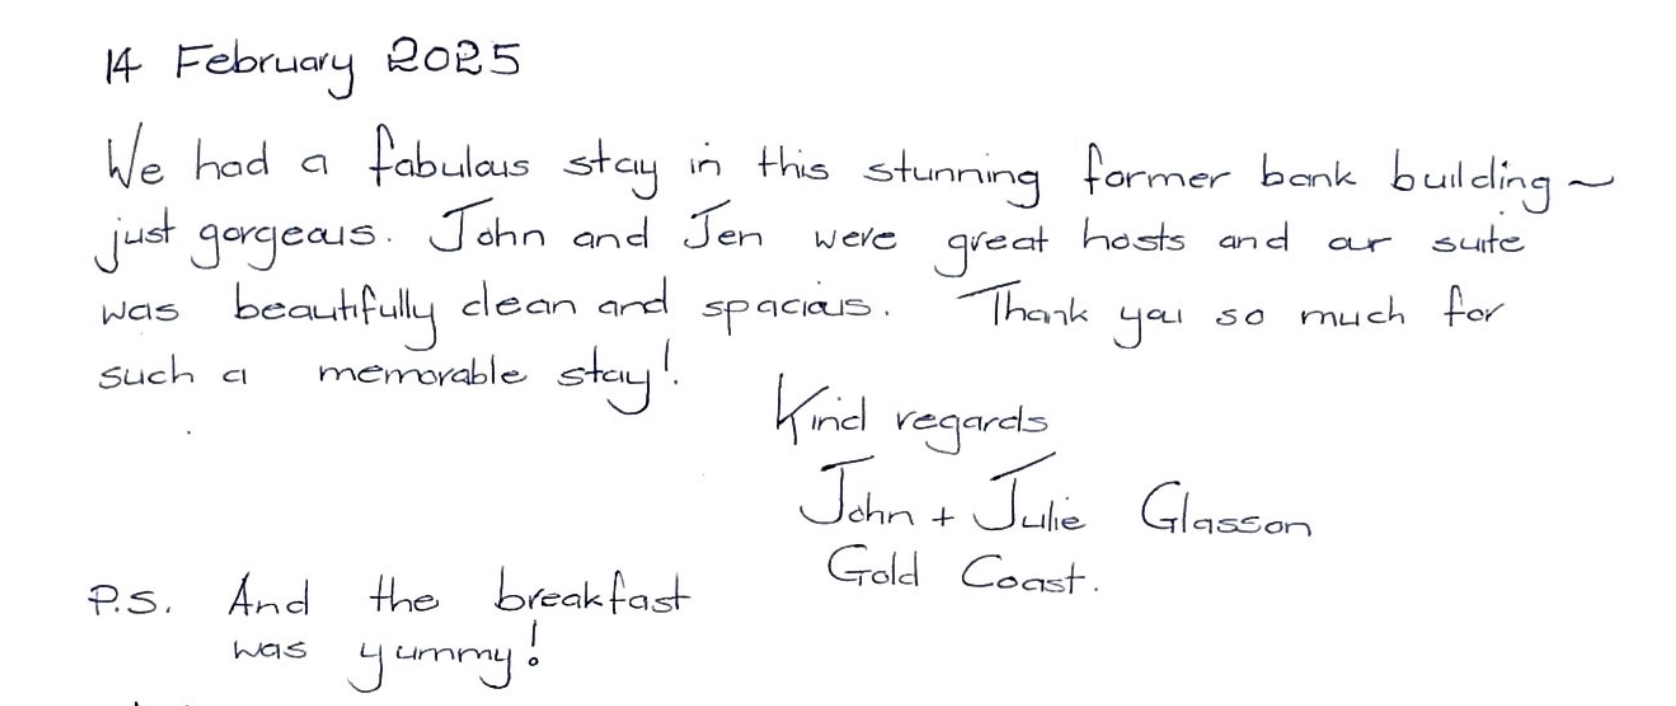 14 February 2025
We had a fabulous stay in this stunning former bank building ~
just gorgeous. John and Jen were great hosts and our suite
was beautifully clean and spacious. Thank you so much for
such a memorable stay!
Kind regards
John + Julie Glasson
Gold Coast.
P.S. And the breakfast
was yummy!